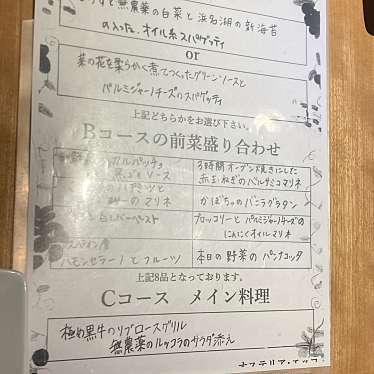 無農薬の白菜と浜名湖の新海苔
の入った、オイル系スパゲッティ
or
菜の花を柔らかく煮てつくったグリーンソースと
パルミジャーノチーズのスパゲッティ
上記どちらかをお選び下さい。
Bコースの前菜盛り合わせ
カルパッチョ
ソース
3時間オーブン焼きにした
赤玉ねぎのバルサミコマリネ
のマリネ
かぼちゃのバニラグラタン
レバーペースト
ブロッコリーとパルミジャーノチーズの
にんにくオイルマリネ
スペイン産
ハモンセラーノとフルーツ
本日の野菜のパンナコッタ
上記8品となっております。
Cコース メイン料理
極め黒牛のリブロースグリル
無農薬のルッコラのサラダ添え
オステリア・エッコ